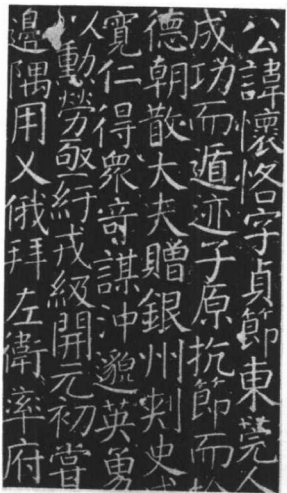 公諱懷恪字貞節東莞人
成功而遁迹子原抗節而
德朝散大夫贈銀州刾史
寬仁得衆竒謀沖邈英勇
以勞亟紆戎級開元初嘗
邊隅用乂俄拜左衛率府